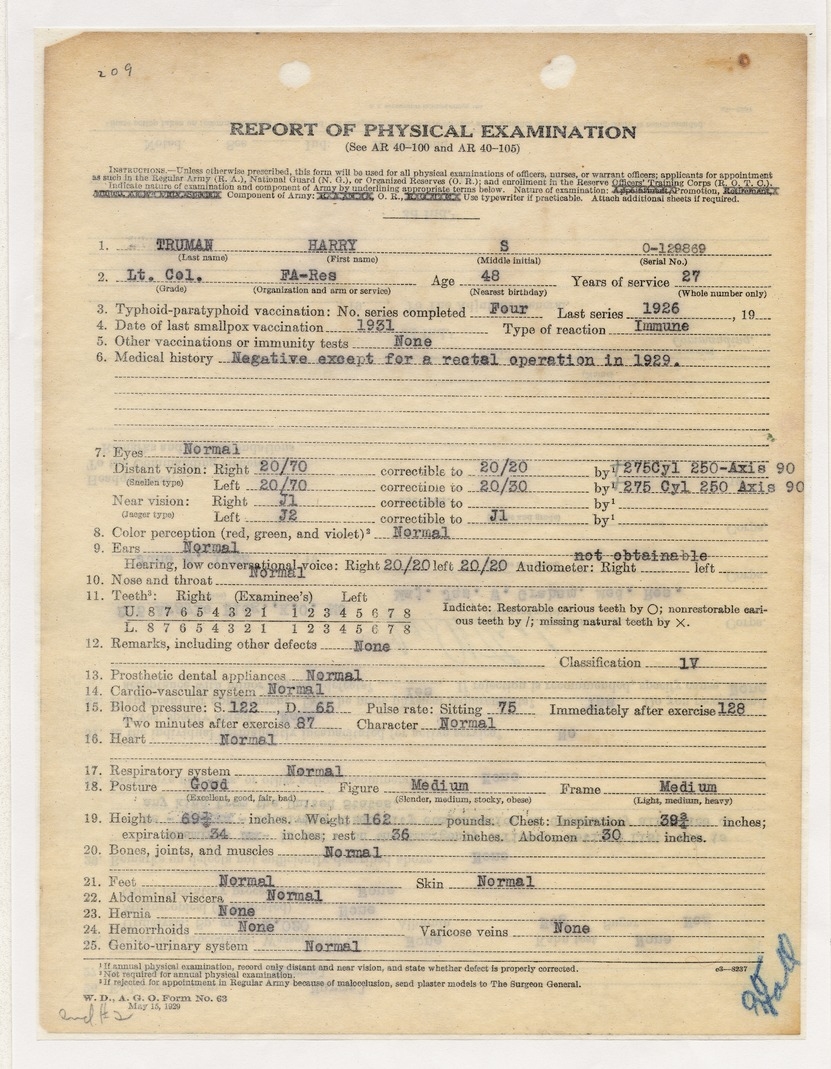 209
REPORT OF PHYSICAL EXAMINATION
(See AR 40–100 and AR 40–105)
INSTRUCTIONS.—Unless otherwise prescribed, this form will be used for all physical examinations of officers, nurses, or warrant officers; applicants for appointment
as such in the Regular Army (R. A.), National Guard (N. G.), or Organized Reserves (O. R.); and enrollment in the Reserve Officers' Training Corps (R. O. T. C.).
Indicate nature of examination and component of Army by underlining appropriate terms below. Nature of examination: Appointment, Promotion, Retirement,
Component of Army: O. R., Use typewriter if practicable. Attach additional sheets if required.
1. TRUMAN HARRY S O-129869
(Last name) (First name) (Middle initial) (Serial No.)
2. Lt. Col. FA-Res Age 48 Years of service 27
(Grade) (Organization and arm or service) (Nearest birthday) (Whole number only)
3. Typhoid-paratyphoid vaccination: No. series completed Four Last series 1926, 19
4. Date of last smallpox vaccination 1931 Type of reaction Immune
5. Other vaccinations or immunity tests None
6. Medical history Negative except for a rectal operation in 1929.
7. Eyes Normal
Distant vision: Right 20/70 correctible to 20/20 by¹ 275Cyl 250-Axis 90
(Snellen type) Left 20/70 correctible to 20/30 by¹ 275 Cyl 250 Axis 90
Near vision: Right J1 correctible to by¹
(Jaeger type) Left J2 correctible to J1 by¹
8. Color perception (red, green, and violet)² Normal
9. Ears Normal not obtainable
Hearing, low conversational voice: Right 20/20 left 20/20 Audiometer: Right left
10. Nose and throat Normal
11. Teeth³: Right (Examinee's) Left
U. 8 7 6 5 4 3 2 1 1 2 3 4 5 6 7 8 Indicate: Restorable carious teeth by ◯; nonrestorable cari-
L. 8 7 6 5 4 3 2 1 1 2 3 4 5 6 7 8 ous teeth by /; missing natural teeth by ×.
12. Remarks, including other defects None
Classification 1V
13. Prosthetic dental appliances Normal
14. Cardio-vascular system Normal
15. Blood pressure: S. 122, D. 65 Pulse rate: Sitting 75 Immediately after exercise 128
Two minutes after exercise 87 Character Normal
16. Heart Normal
17. Respiratory system Normal
18. Posture Good Figure Medium Frame Medium
(Excellent, good, fair, bad) (Slender, medium, stocky, obese) (Light, medium, heavy)
19. Height 69¾ inches. Weight 162 pounds. Chest: Inspiration 39¾ inches;
expiration 34 inches; rest 36 inches. Abdomen 30 inches.
20. Bones, joints, and muscles Normal
21. Feet Normal Skin Normal
22. Abdominal viscera Normal
23. Hernia None
24. Hemorrhoids None Varicose veins None
25. Genito-urinary system Normal
¹ If annual physical examination, record only distant and near vision, and state whether defect is properly corrected. c3—8237
² Not required for annual physical examination.
³ If rejected for appointment in Regular Army because of malocclusion, send plaster models to The Surgeon General.
W. D., A. G. O. Form No. 63
May 15, 1929